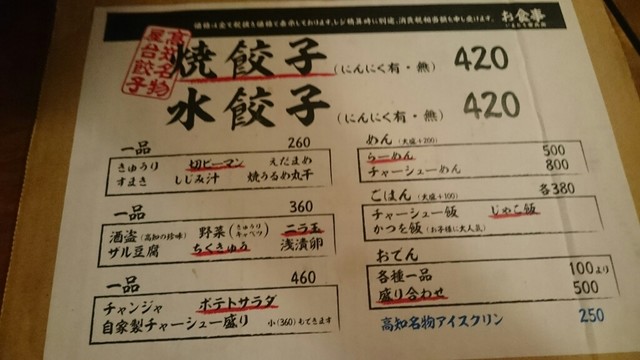 価格は全て税抜き価格で表示しております。レジ精算時に別途、消費税相当額を申し受けます。
お食事
高知名物
屋台餃子
焼餃子(にんにく有・無) 420
水餃子(にんにく有・無) 420
一品 260
きゅうり 切ピーマン えだまめ
すまき しじみ汁 焼うるめ丸干
一品 360
酒盗(高知の珍味) 野菜(きゅうり キャベツ) ニラ玉
ザル豆腐 ちくきゅう 浅漬卵
一品 460
チャンジャ ポテトサラダ
自家製チャーシュー盛り 小(360)もできます
めん(大盛+200)
らーめん 500
チャーシューめん 800
ごはん(大盛+100) 各380
チャーシュー飯 じゃこ飯
かつを飯(お子様に大人気)
おでん
各種一品 100より
盛り合わせ 500
高知名物アイスクリン 250